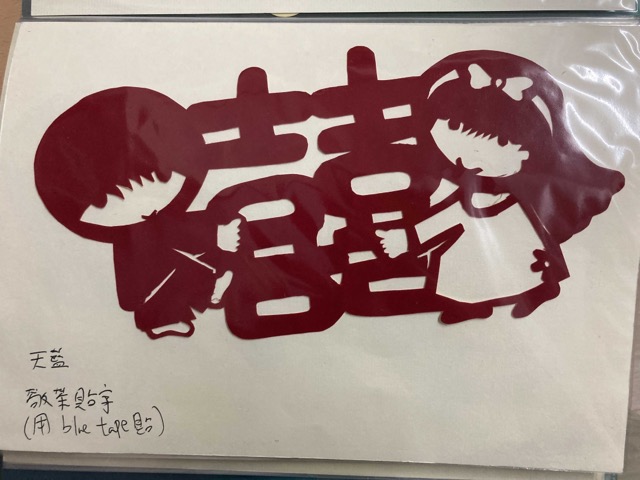 囍
天藍
敬茶貼字
(用 blue tape貼)